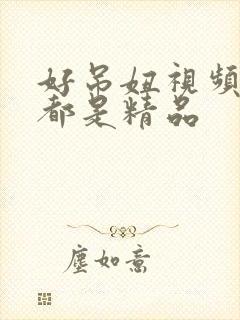 好吊妞視頻
都是精品
塵如意